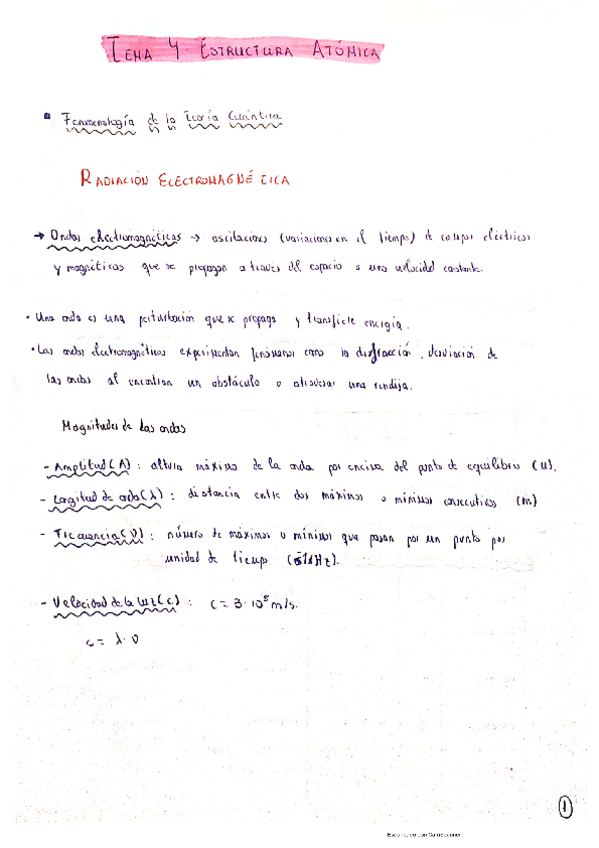 TEMA 4. ESTRUCTURA ATÓMICA
Fenomenología de la Teoría Cuántica
RADIACIÓN ELECTROMAGNÉTICA
→ Ondas electromagnéticas → oscilaciones (variaciones en el tiempo) de campos eléctricos
y magnéticos que se propagan a traves del espacio a una velocidad constante.
• Una onda es una perturbación que se propaga y transfiere energía.
• Las ondas electromagnéticas experimentan fenómenos como la difracción, desviación de
las ondas al encontrar un obstáculo o atravesar una rendija.
Magnitudes de las ondas
- Amplitud (A): altura máxima de la onda por encima del punto de equilibrio (U).
- Longitud de onda (λ): distancia entre dos máximos o mínimos consecutivos (m)
- Frecuencia (ν): número de máximos o mínimos que pasan por un punto por
unidad de tiempo
- Velocidad de la luz (c): c = 3·10⁸ m/s.
c = λ·ν
1
Escaneado con CamScanner